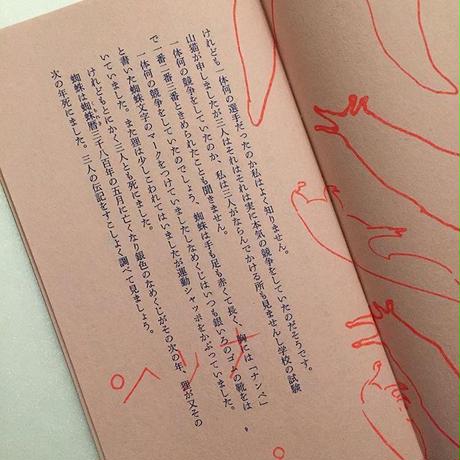 けれども一体何の選手だったのか私はよく知りません。
山猫が申しましたが三人はそれはそれは実に本気の競争をしていたのだそうです。
一体何の競争をしていたのか、私は三人がならんでかける所も見ませんし学校の試験
で一番二番三番ときめられたことも聞きません。
一体何の競争をしていたのでしょう、蜘蛛は手も足も赤くて長く、胸には「ナンペ」
と書いた蜘蛛文字のマークをつけていましたしなめくじはいつも銀いろのゴムの靴をは
いていました。また狸は少しこわれてはいましたが運動シャッポをかぶっていました。
けれどもとにかく三人とも死にました。
蜘蛛は蜘蛛暦三千八百年の五月に亡くなり銀色のなめくじがその次の年、狸が又その
次の年死にました。三人の伝記をすこしよく調べて見ましょう。
9